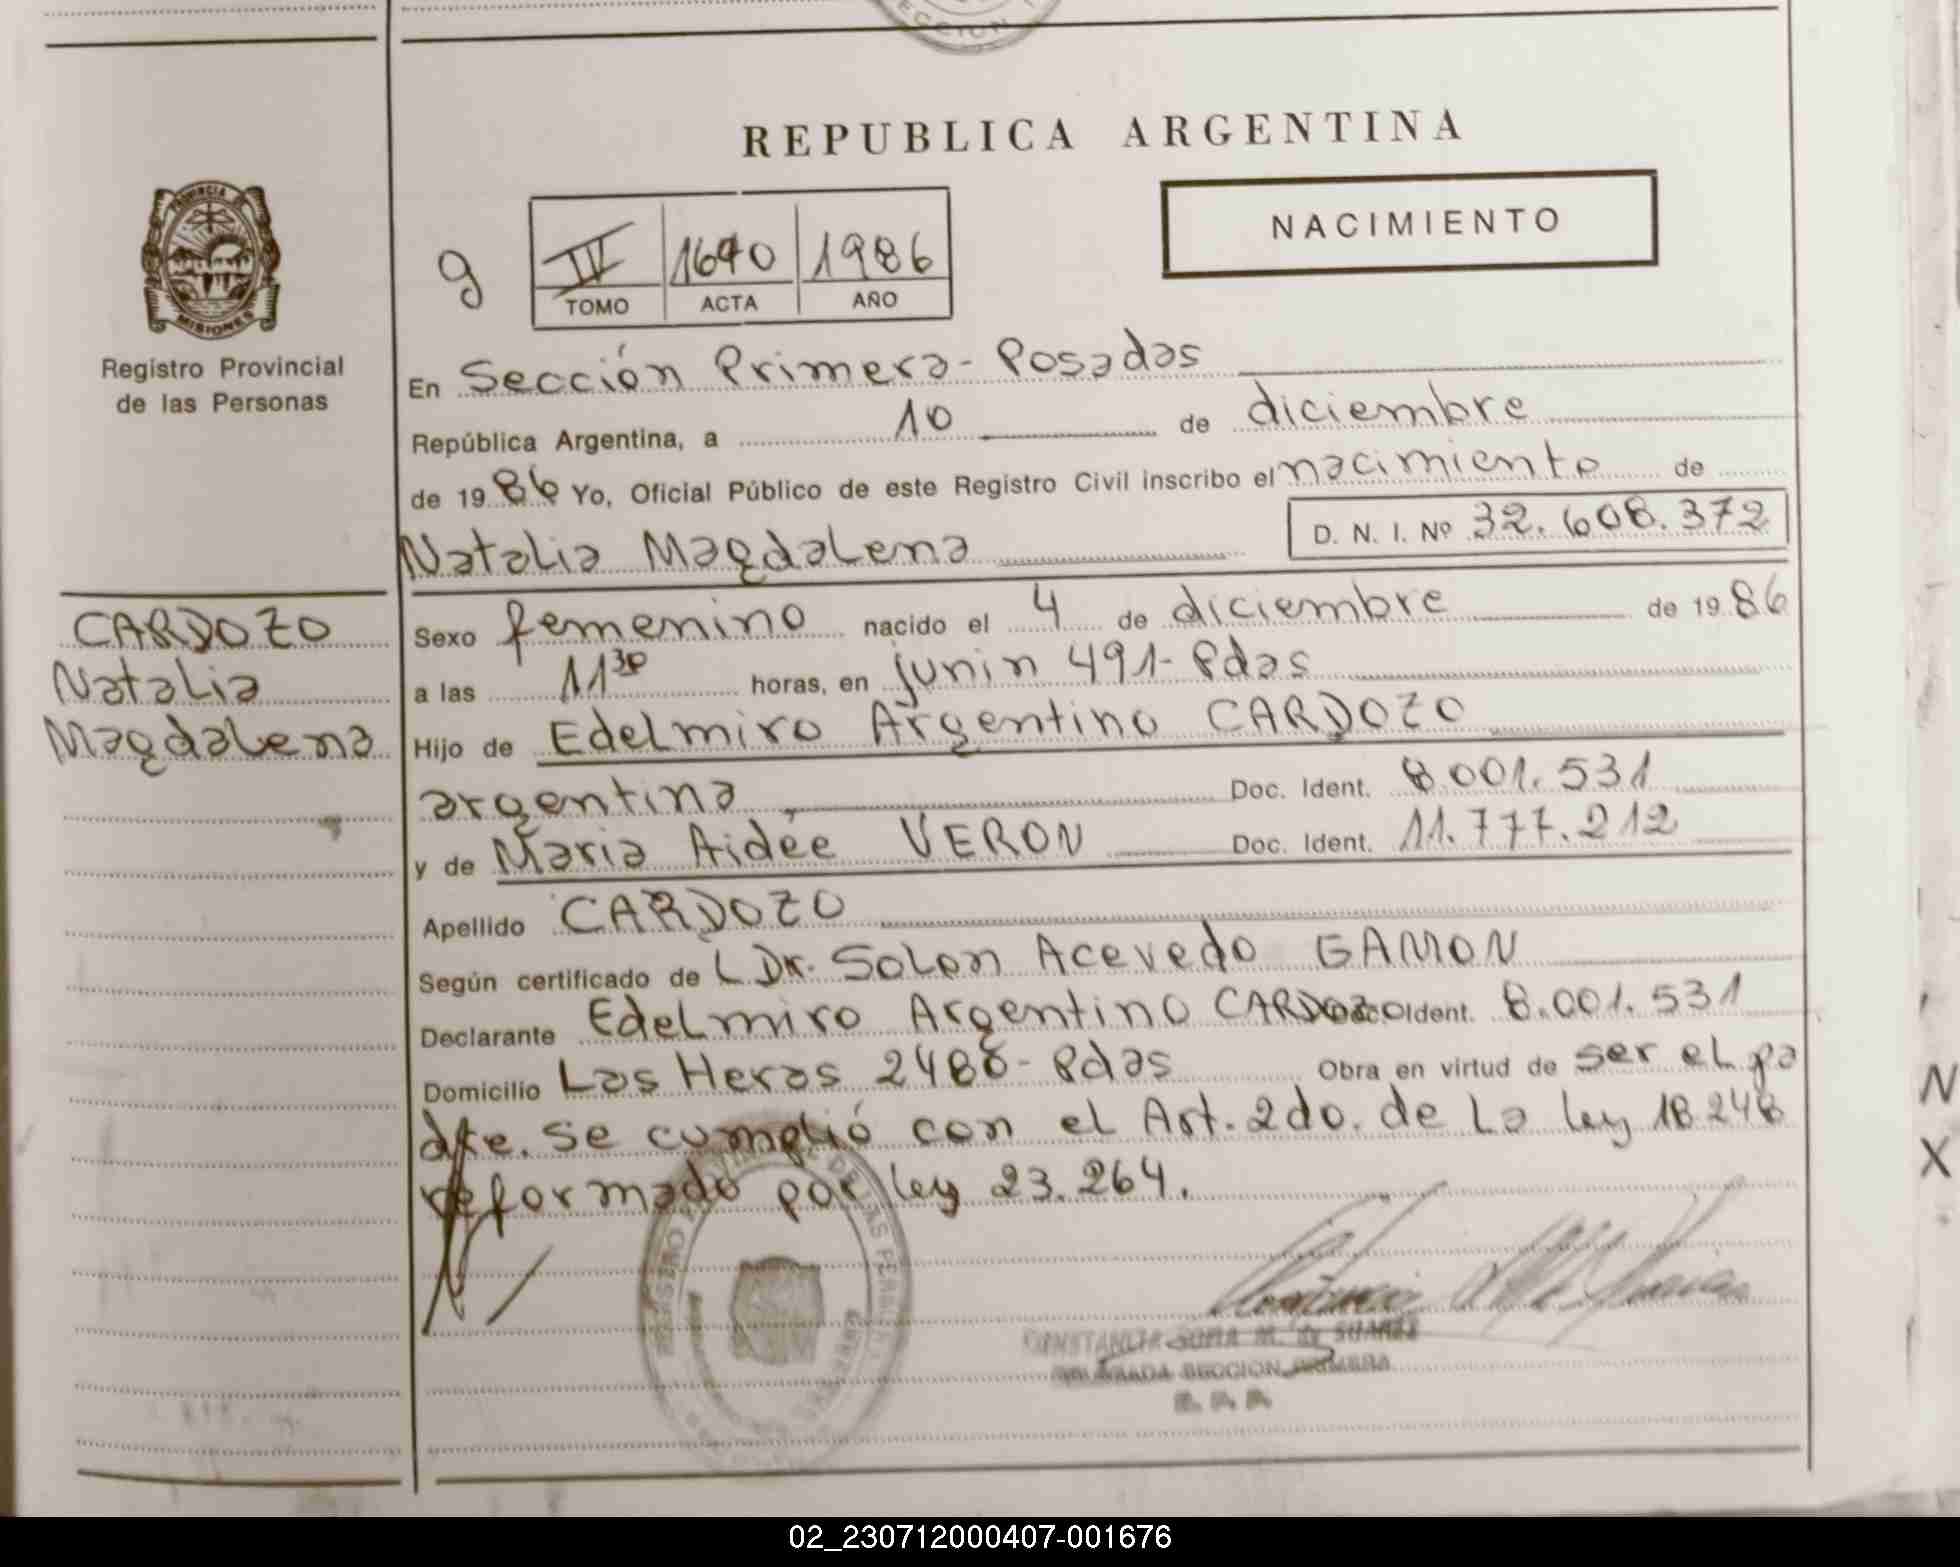 REPUBLICA ARGENTINA
NACIMIENTO
PROVINCIA DE
MISIONES
Registro Provincial
de las Personas
9
IV 1640 1986
TOMO ACTA AÑO
En Sección Primera - Posadas
República Argentina, a 10 de diciembre
de 1986 Yo, Oficial Público de este Registro Civil inscribo el nacimiento de
Natalia Magdalena D. N. I. Nº 32.608.372
CARDOZO
Natalia
Magdalena
Sexo femenino nacido el 4 de diciembre de 1986
a las 11 30 horas, en junin 491 - Pdas
Hijo de Edelmiro Argentino CARDOZO
argentina Doc. Ident. 8.001.531
y de Maria Aidée VERON Doc. Ident. 11.777.212
Apellido CARDOZO
Según certificado de L Dr. Solon Acevedo GAMON
Declarante Edelmiro Argentino CARDOZO Doc. Ident. 8.001.531
Domicilio Las Heras 2488 - Pdas Obra en virtud de ser el pa
dre. Se cumplió con el Art. 2do. de La ley 18248
reformado por ley 23.264.
CONSTANCIA SOFIA M. de SUAREZ
DELEGADA SECCION PRIMERA
N
X
02_230712000407-001676